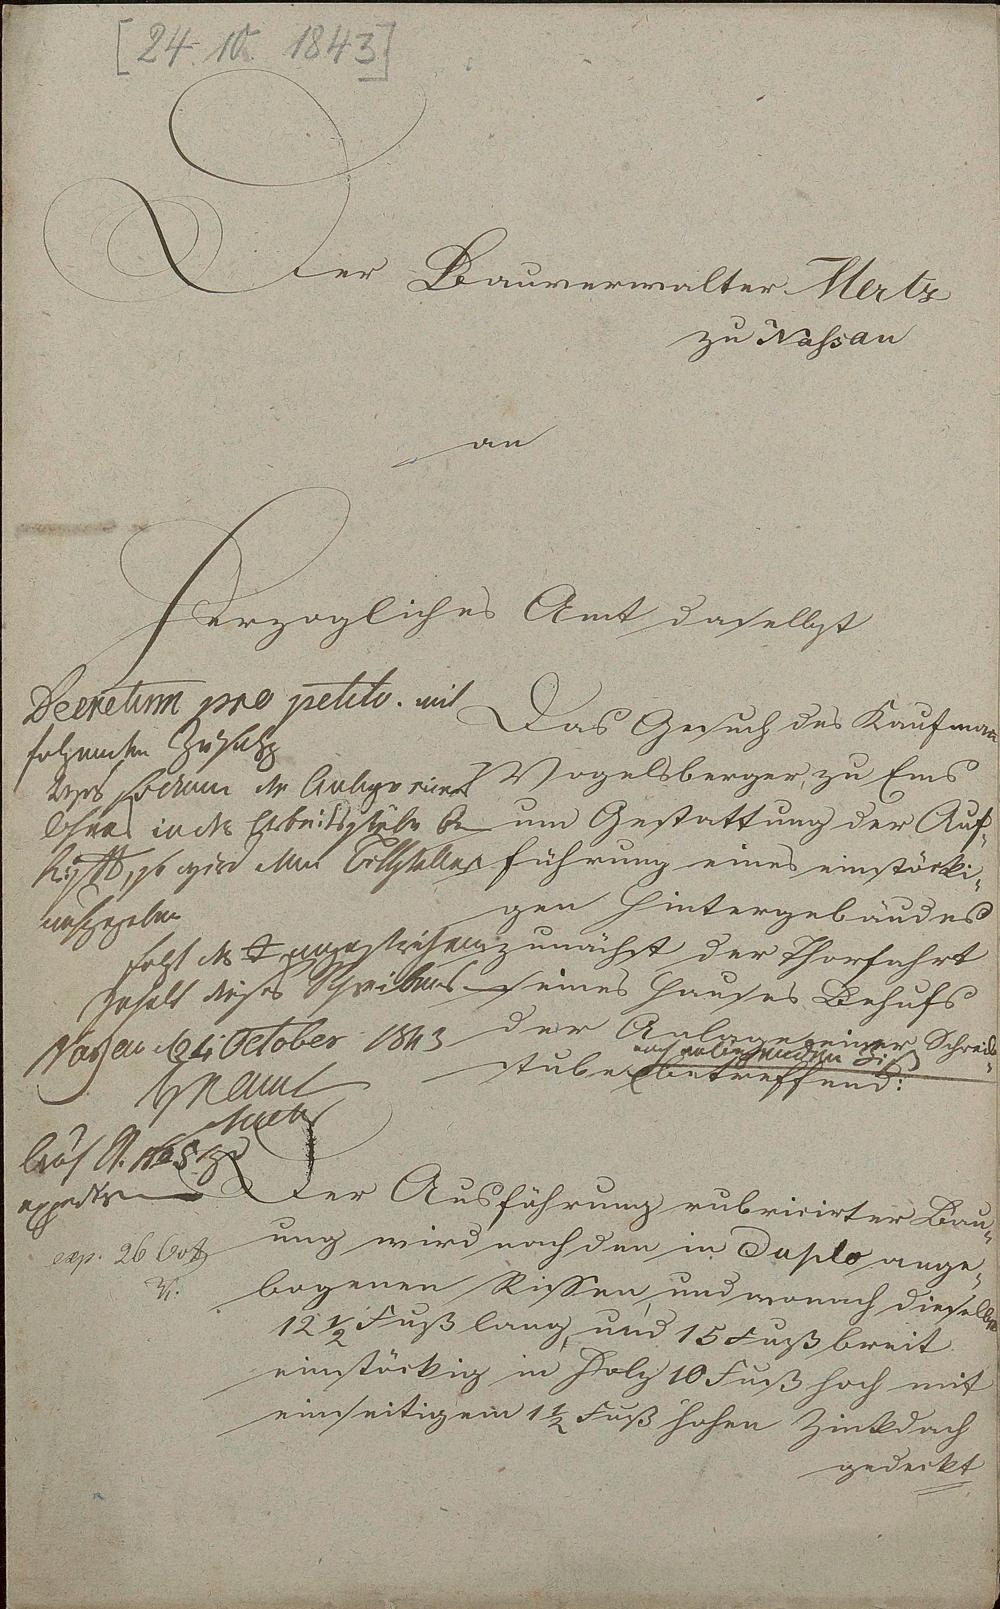 [24. 10. 1843]
Der Bauverwalter Mertz
zu Nassau
an
Herzogliches Amt daselbst
Decretum pro petito. mit
folgendem Zusatz
der Anlage eines
in der Arbeitsstube
so wird dem Bittsteller
aufgegeben
folgt der
Inhalt dieses Schreibens
Nassau 24 October 1843
exp. 26 Oct
Das Gesuch des Kaufmann
Vogelsberger zu Ems
um Gestattung der Auf-
führung eines einstöcki-
gen Hintergebäudes
zunächst der Thorfahrt
seines Hauses Behufs
der Anlage einer Schreib-
stube betreffend:
Der Ausführung rubricirter Bau-
ung wird nach den in Duplo ange-
bogenen Rissen, und wonach dieselbe
12 1/2 Fuß lang, und 15 Fuß breit
einstöckig in Holz 10 Fuß hoch mit
einseitigem 1 1/2 Fuß hohen Zinkdach
gedeckt